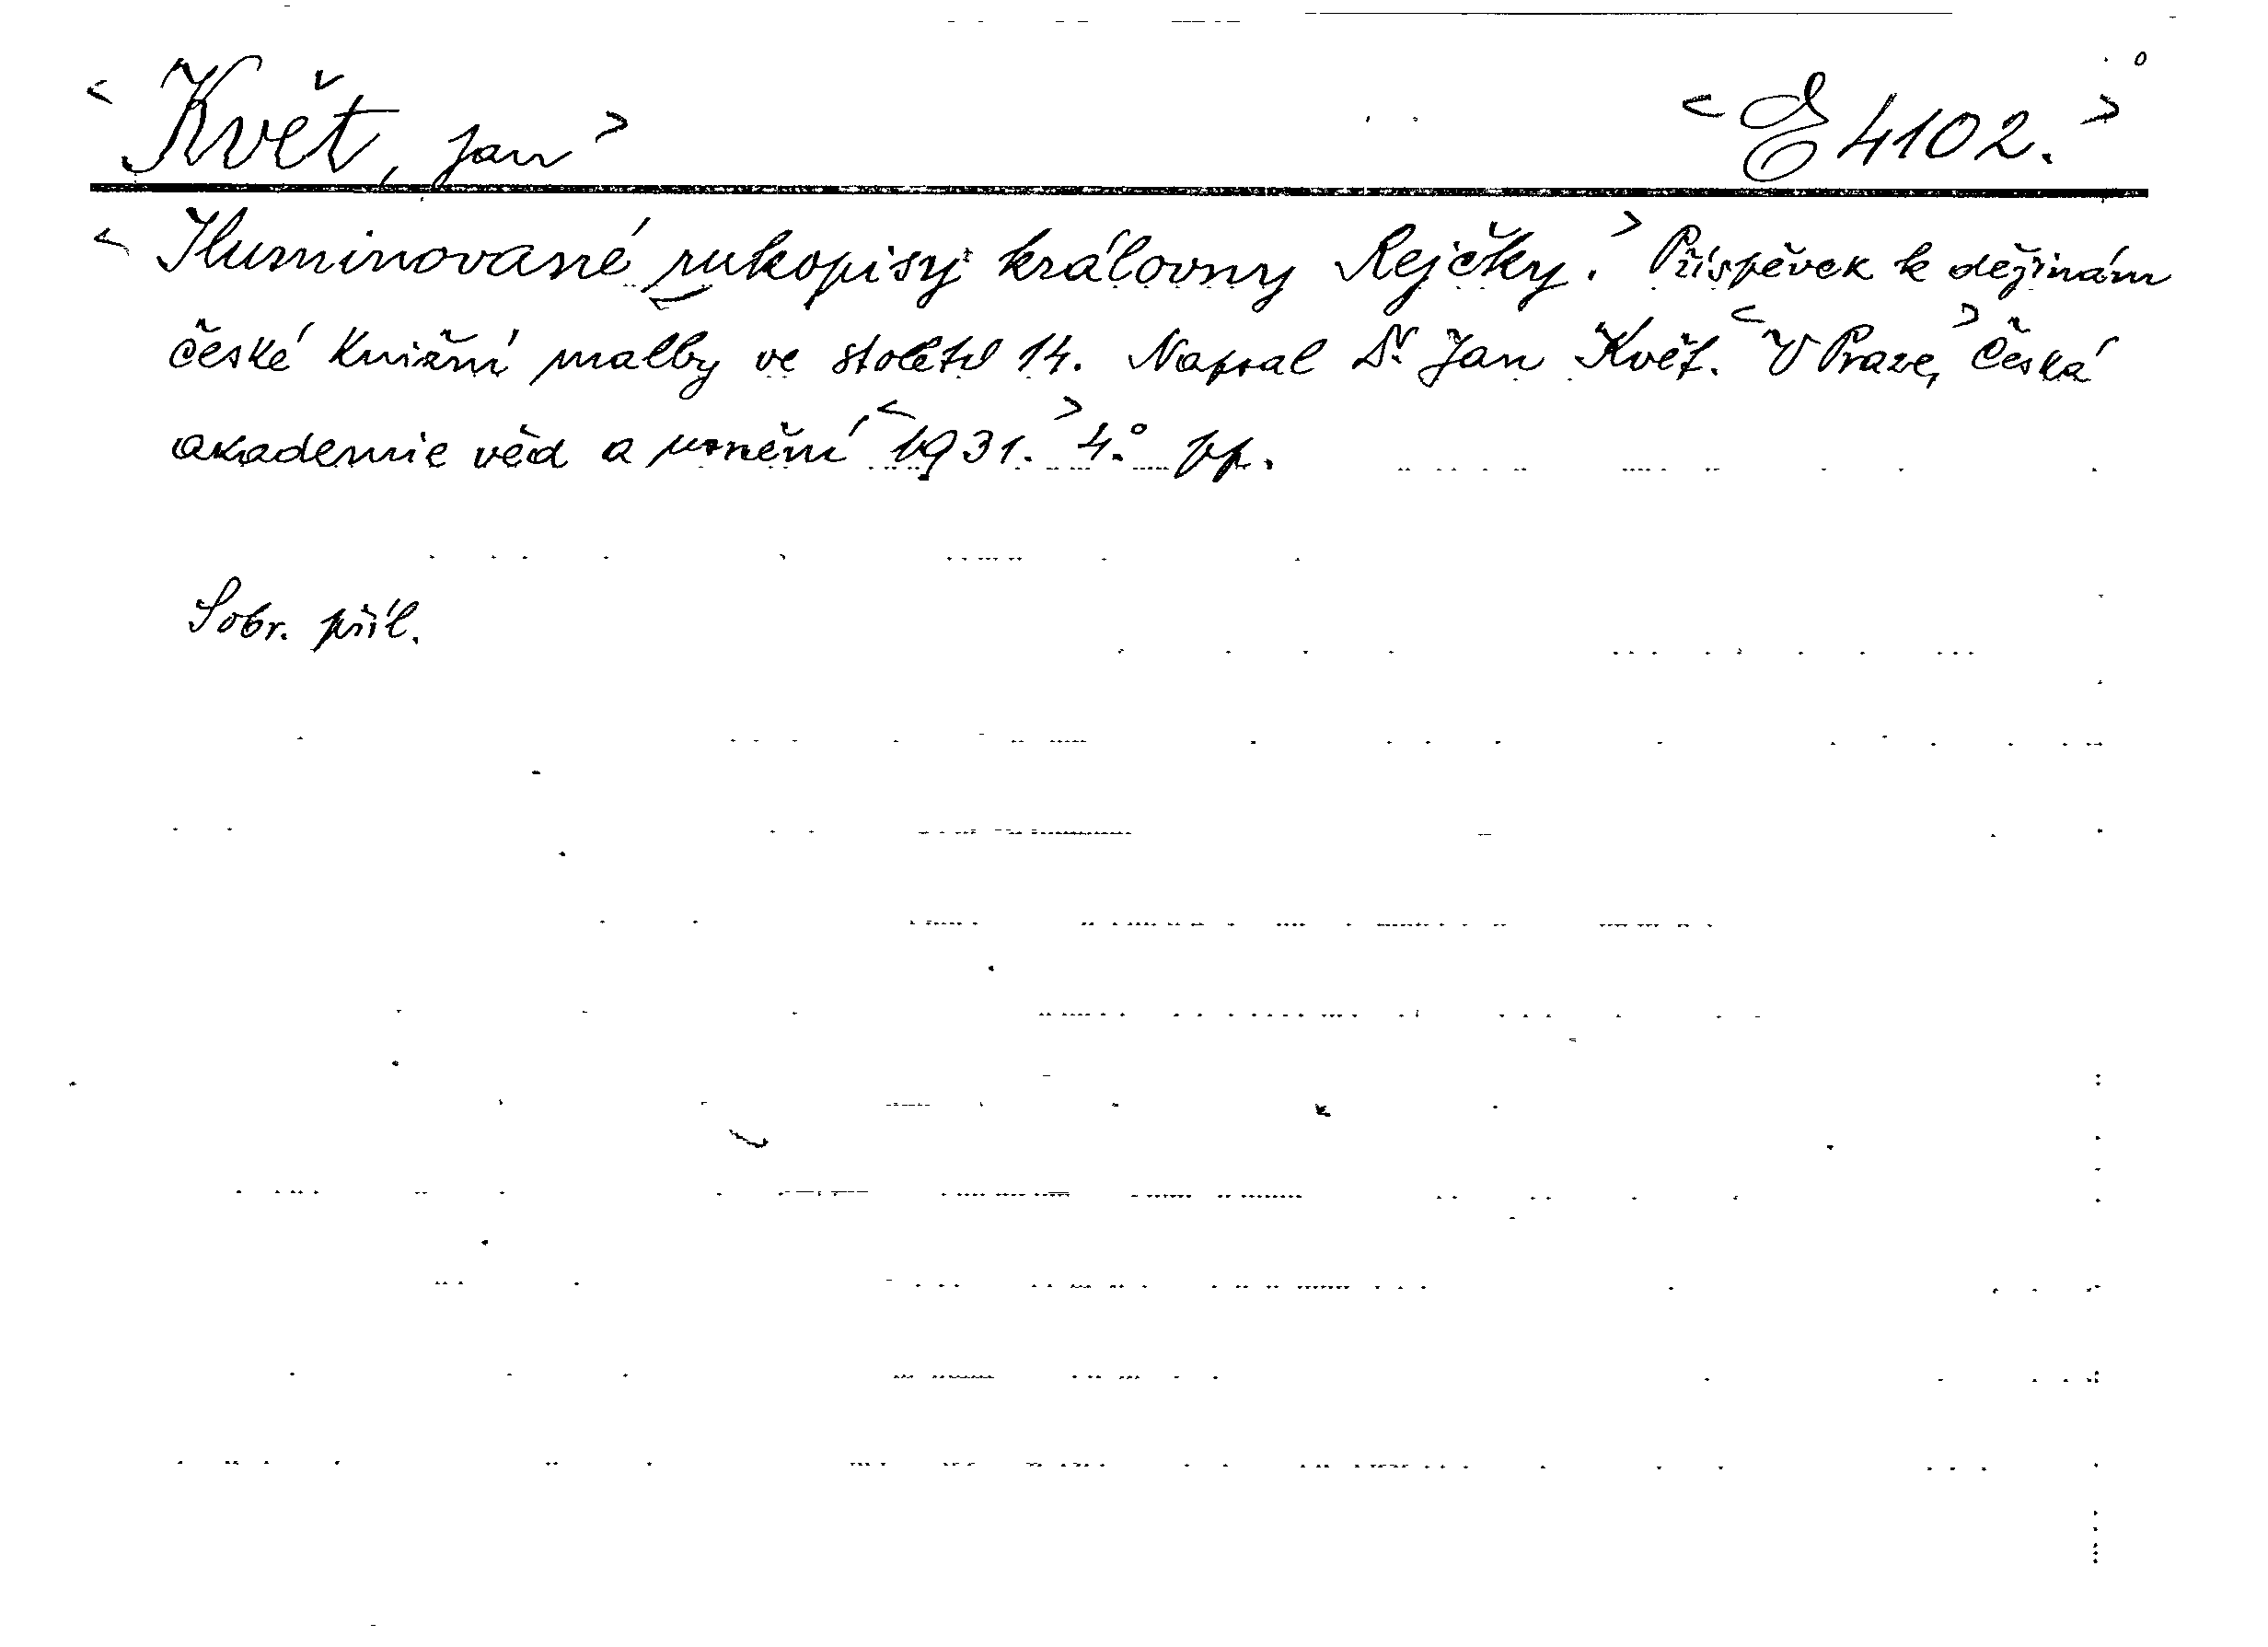 < Květ, Jan > < E 4102. >
< Iluminované rukopisy královny Rejčky. > Příspěvek k dějinám
české knižní malby ve století 14. Napsal Dr. Jan Květ. < V Praze, > Česká
akademie věd a umění < 1931. > 4.° pp.
S obr. příl.